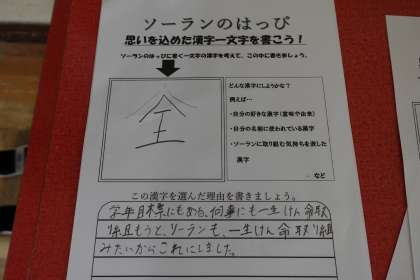 ソーランのはっぴ
思いを込めた漢字一文字を書こう！
ソーランのはっぴに書く一文字の漢字を考えて、この中に書きましょう。
全
どんな漢字にしようかな？
例えば…
・自分の好きな漢字（意味や由来）
・自分の名前に使われている漢字
・ソーランに取り組む気持ちを表した
漢字
など
この漢字を選んだ理由を書きましょう。
学年目標にもある、何事にも一生けん命取
り組もうと、ソーランも、一生けん命取り組
みたいからこれにしました。